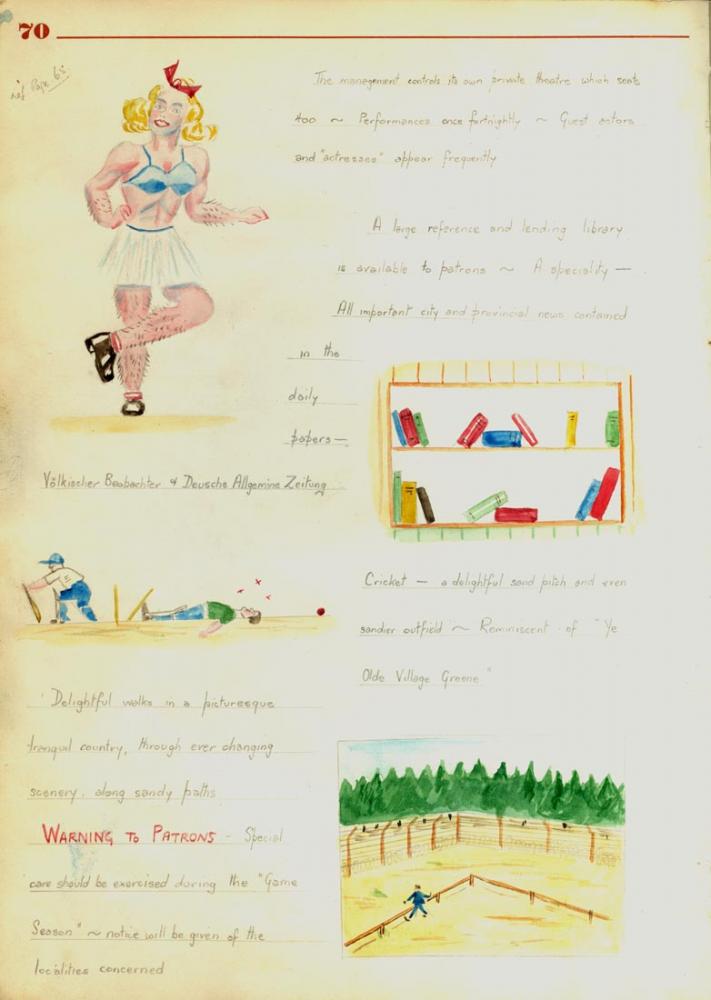 70
ref Page 65
The management controls its own private theatre which seats
400 ~ Performances once fortnightly ~ Guest actors
and "actresses" appear frequently
A large reference and lending library
is available to patrons ~ A speciality —
All important city and provincial news contained
in the
daily
papers —
Völkischer Beobachter & Deusche Allgemine Zeitung
Cricket — a delightful sand pitch and even
sandier outfield ~ Reminiscent of "Ye
Olde Village Greene"
Delightful walks in a picturesque
tranquil country, through ever changing
scenery, along sandy paths
WARNING TO PATRONS - Special
care should be exercised during the "Game
Season" ~ notice will be given of the
localities concerned